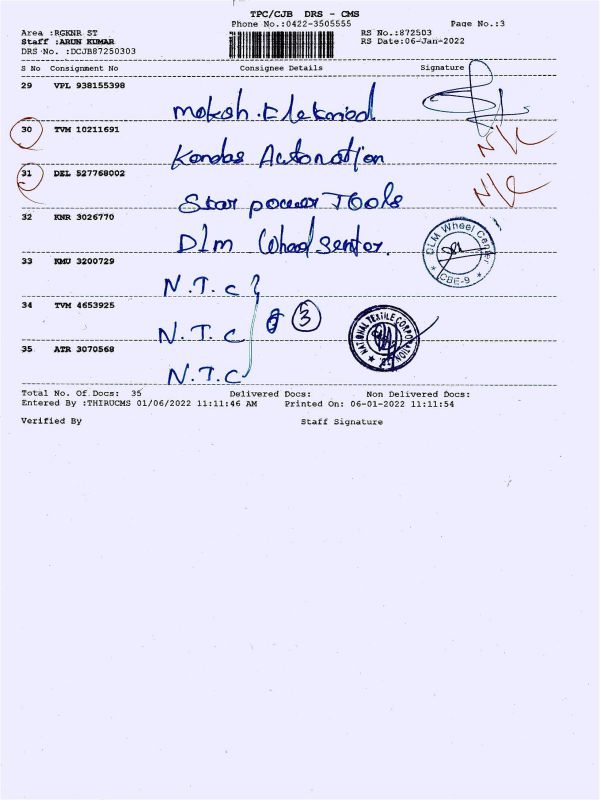 TPC/CJB DRS - CMS
Phone No.:0422-3505555 Page No.:3
Area :RGKNR ST RS No.:872503
Staff :ARUN KUMAR RS Date:06-Jan-2022
DRS No. :DCJB87250303
S No Consignment No Consignee Details Signature
29 VPL 938155398
30 TVM 10211691 N/C
Automation
31 DEL 527768002 N/C
Star power Tools
32 KNR 3026770
Dlm
DLM Wheel Center
CBE-9
33 KMU 3200729
N.T.C
34 TVM 4653925
3
N.T.C
NATIONAL TEXTILE CORPORATION
35 ATR 3070568
N.T.C
Total No. Of Docs: 35 Delivered Docs: Non Delivered Docs:
Entered By :THIRUCMS 01/06/2022 11:11:46 AM Printed On: 06-01-2022 11:11:54
Verified By Staff Signature